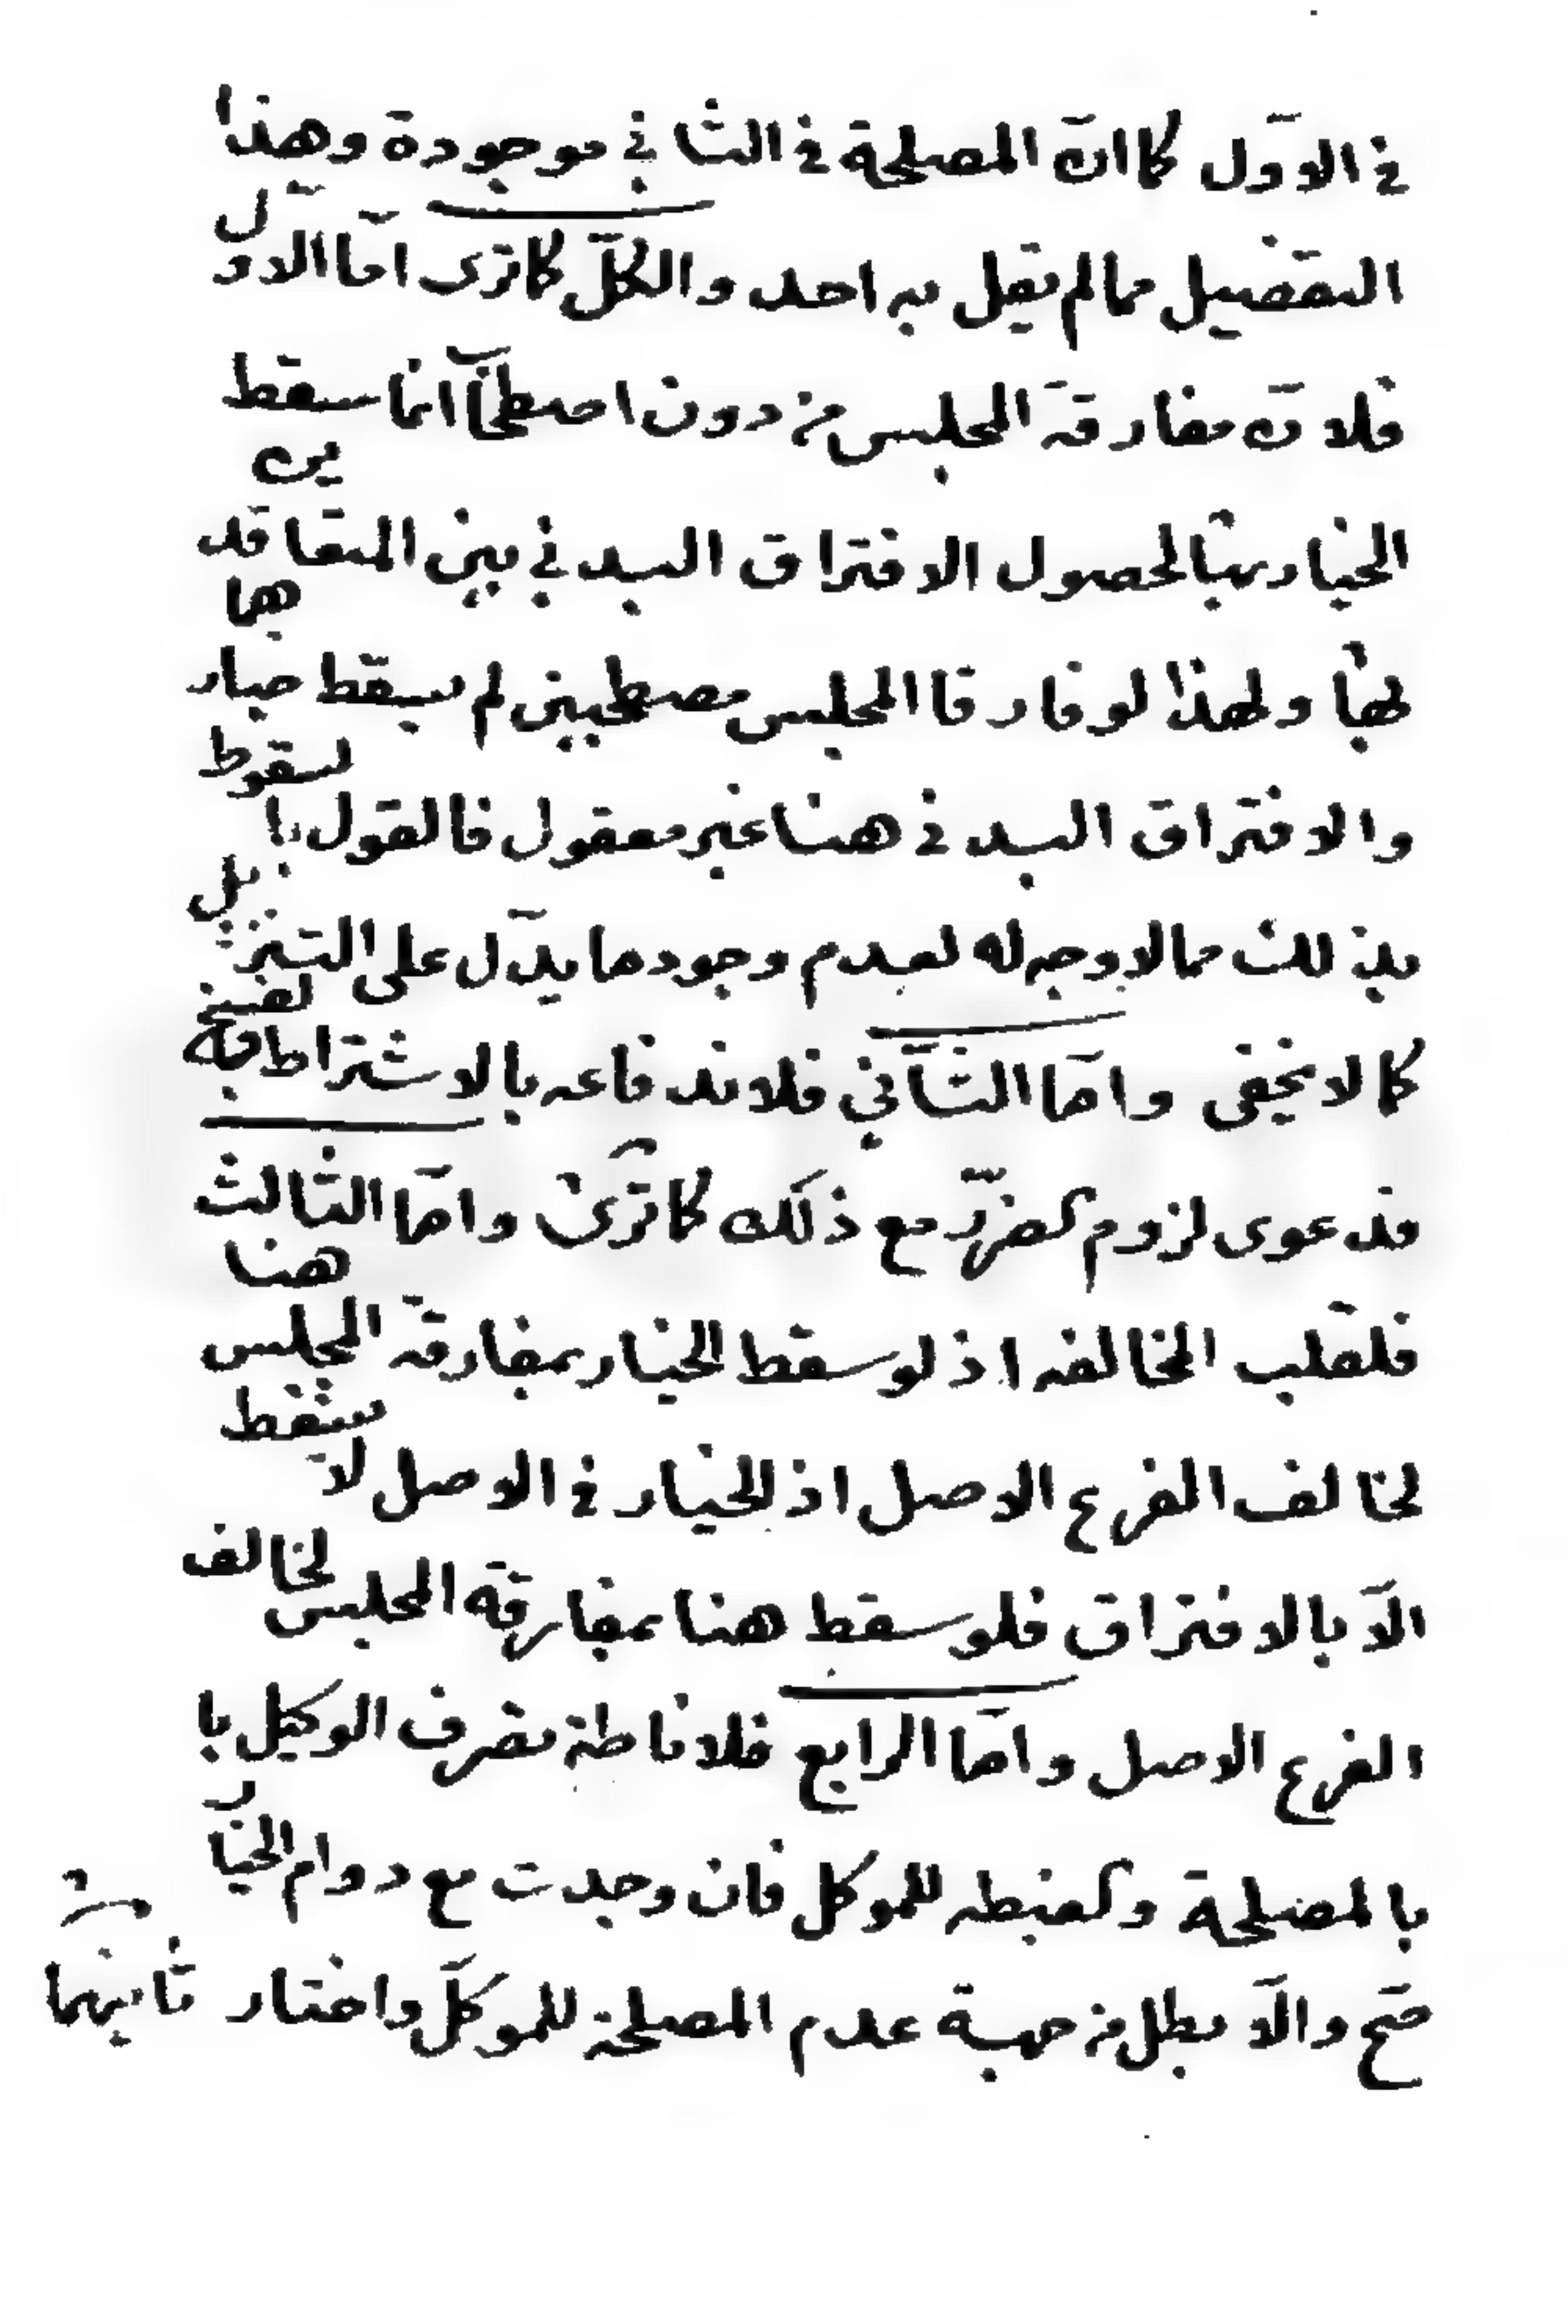 في الاوّل كما انّ المصلحة في الثاني موجودة وهذا
التفضيل مما لم يقل به احد والكلّ كما ترى امّا الاوّل
فلانّ مفارقة المجلس من دون اصطحاب انما سقط
الخيار بها لحصول الافتراق البدني بين المتعاقدين
بها ولهذا لو فارقا المجلس مصطحبين لم يسقط خيارهما
والافتراق البدني هنا غير معقول فالقول بالسقوط
بذلك مما لا وجه له لعدم وجود ما يدّل على التنزيل
كما لا يخفى وامّا الثّاني فلاندفاعه بالاشتراط لفسخ
فدعوى لزوم الضرر مع ذلك كما ترى وامّا الثالث
فلقلب المخالفه اذ لو سقط الخيار بمفارقة المجلس هنا
لخالف الفرع الاصل اذ الخيار في الاصل لا يسقط
الّا بالافتراق فلو سقط هنا بمفارقة المجلس لخالف
الفرع الاصل وامّا الرابع فلاناطة تصرف الوكيل با
بالمصلحة والغبطه للموكل فان وجدت مع دوام الخيار
صحّ والّا بطل من جهة عدم المصلحة للموكلّ واختار ثانيهما